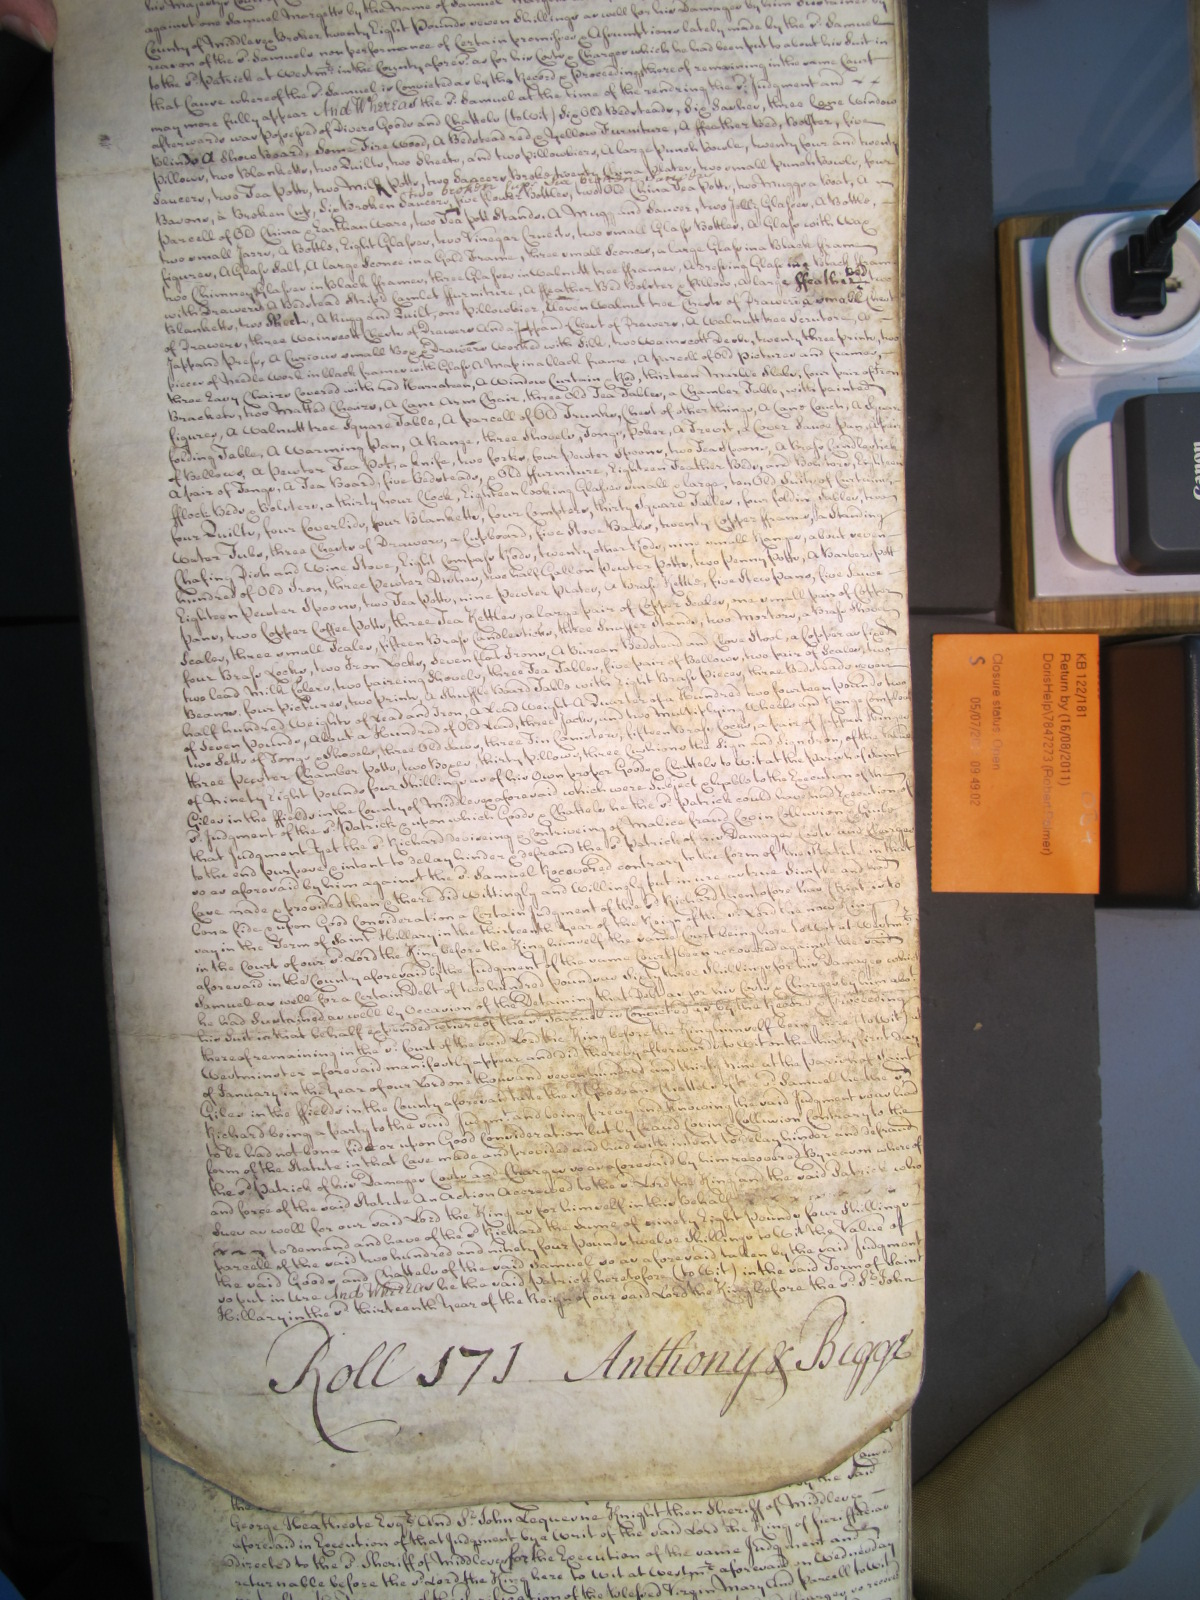 against one Samuel Margetts by the Name of Samuel
County of Middlesex Broker twenty Eight Pounds seven Shillings as well for his Damages by him sustained by
reason of the sd. Samuels non performance of Certain promises & Assumptions lately made by the sd. Samuel
to the sd. Patrick at Westmr. in the County aforesd. as for his Costs & Charges which he had been put to about his Suit in
that Cause whereof the sd. Samuel is Convicted as by the Record & Proceedings thereof remaining in the same Court
may more fully appear And Whereas the sd. Samuel at the time of the rendring the sd. Judgment and
afterwards was Possess'd of Divers Goods and Chattels (to Wit) Six Old Bedsteads, Six Sashes, three Window
Blinds A Show Board, Some Fire Wood, A Bedstead red & Yellow Furniture, A ffeather Bed, Bolster, five
Pillows, two Blanketts, two Quilts, two Sheets, and two Pillowbiers, A large Punch Bowle, twenty four and twenty
Saucers, two Tea Potts, two Milk Potts, two Saucers Broke, twenty China Plates, two small Punch Bowls, four
Basons, a Broken Cup, Six Broken Saucers, five flower Bottles, two Old China Tea Potts, two Muggs a Boat, A
Parcell of Old China & Earthen Ware, two Tea Pott Stands, A Mugg and Saucer, two Jelly Glasses, A Bottle,
two small Jarrs, A Bottle, Eight Glasses, two Vinegar Cruets, two small Glass Bottles, A Glass with Wax
figures, A Glass Salt, A large Sconce in a Gold Frame, three small Sconces, a large Glass in a Black frame
two Chimney Glasses in Black fframes, three Glasses in Walnutt tree fframes, A dressing Glass in a black frame
with Drawers A Bedstead Striped Camlet ffurniture, A ffeather Bed Bolster & Pillow, a large ffeather Bed two
Blanketts, two Sheets, A Rugg and Quilt, one Pillowbier, Seven Walnut tree Chests of Drawers a small Chest
of Drawers, three Wainscott Chests of Drawers And a Jappand Chest of Drawers, A Walnutt tree Scrutore, A
Jappand Press, A Curious small Box & Drawers Worked with Silk, two Wainscott Desks, twenty three prints, two
pieces of Needle Work in black frames with Glass A Map in a black frame, A Parcell of Old Pictures and frames,
three Easy Chairs Covered with red Harrateen, A Window Curtain & Rod, thirteen Marble Slabs, four pair of Iron
Bracketts, two Matted Chairs, A Cane Arm Chair, three Old Tea Tables, a Chamber Table, with painted
figures, A Walnutt tree Square Table, A parcell of Old Trunks, Chest & other things, A Cane Couch, A Square
folding Table, A Warming Pan, A Range, three Shovels, Tongs, Poker, A Trevit, a Cover Sauce Pan, a pair
of Bellows, A Pewter Tea Pot, a knife, two forks, four Pewter Spoons, two Tea Spoons, A Brass Candlestick
A pair of Tongs, A Tea Board, five Bedsteads, & Old ffurniture, Eighteen Feather Beds, and Bolsters, Eighteen
fflock Beds & Bolsters, a thirty hour Clock, Eighteen looking Glasses small & large, ten Old Suits of Curtains,
four Quilts, four Coverlids, four Blanketts, four Compters, thirty Square Tables, four folding Tables, two
Water Tubs, three Chests of Drawers, a Cupboard, five Stove Backs, twenty Copper fframes, a Standing
Chafing Dish and Wine Stove, Eight Compass Rods, twenty other Rods, nine small Ranges, about seven
hundred of Old Iron, three Pewter Dishes, two half Gallon Pewter Potts, two Penny Potts, A Barbers Pott
Eighteen Pewter Spoons, two Tea Potts, nine Pewter Plates, A Brass Kettle, five Stew pans, five Sauce
Pans, two Copper Coffee Potts, three Tea Kettles, a large pair of Copper Scales, one small pair of Copper
Scales, three small Scales, fifteen Brass Candlesticks, three Snuffer Stands, two Mortars, a Brass Shovel
four Brass Locks, two Iron Locks, Seven flat Irons, A Bureau Bedstead and Close Stool, a Copper as fixed
two lead Milk Coolers, two pairing Shovels, three Tea Tables, five pair of Bellows, two pair of Scales, two
Beams, four Pictures, two prints, A Shuffle Board Table with Eight Brass Pieces, three Bedsteads seven
half hundred Weights of Lead and Iron, A Lead Weight A Ditto of a Hundred two fourteen Pounds two
of Seven Pounds, About a Hundred of Old Lead, three Jacks, and two Multiplying Wheels and Rang
two Setts of Tongs & Shovels, three Old Saws, three Tin Canisters, fifteen Brass Cocks, a pair of
three Pewter Chamber Potts, two Boxes, thirty Pillows, three Cushions the Sign and Sign Iron, of the Value
of Ninety Eight Pounds four Shillings as of his Own proper Goods & Chattels to Wit at the Parish of Saint
Giles in the ffields in the County of Middlesex aforesaid which were Subject & lyable to the Execution of the
sd. Judgment of the sd. Patrick & upon which Goods & Chattels he the sd. Patrick could have had Execution of
that Judgment Yet the sd. Richard devising & Contriving of Malice fraud Covin Collusion & Guile
to the end purpose & intent to delay hinder & defraud the sd. Patrick of his Damages Costs and Charges
so as aforesaid by him against the sd. Samuel Recovered contrary to the form of the Statute in that
Case made & provided then & there did Wittingly and Willingly put in ure as true Simple and had
bona fide & upon Good Consideration a Certain Judgment of the sd. Richard heretofore had (that is to
say) in the Term of Saint Hillary in the thirteenth Year of the Reign of the sd. Lord the now King
in the Court of our sd. Lord the King before the King himself the same Court being here to Wit at Westmr.
aforesaid in the County aforesaid by the Judgment of the same Court been recovered against the said
Samuel as well for a Certain Debt of two Hundred Pounds as Sixty three Shillings for his Damages which
he had Sustained as well by Occasion of the Detaining that Debt as for his Costs & Charges by him about
his Suit in that behalf expended whereof the sd. Samuel is Convicted as by the Record & Proceedings
thereof remaining in the sd. Court of the said Lord the King before the King himself here (to Wit) at
Westminster aforesaid manifestly appear and did thereby afterwards to Wit on the thirty first Day
of January in the Year of our Lord one thousand seven hundred and thirty Nine at the Parish of Saint
Giles in the ffields in the County aforesaid take the sd. Goods and Chattels of the sd. Samuel he the sd.
Richard being a Party to the said Judgment and being Privy and Knowing the said Judgment was had
to be had not bona fide or upon Good Consideration but by fraud Covin & Collusion Contrary to the
form of the Statute in that Case made and provided and had with intent to delay hinder and defraud
the sd. Patrick of his Damages Costs and Charges so as aforesaid by him recovered by reason whereof
and force of the said Statute An Action Accrewed to the sd. Lord the King and the said Patrick who
Sues as well for our said Lord the King as for himself in this behalf
to demand and have of the sd. Richard the Sume of Ninety Eight Pounds four Shillings
parcell of the said two hundred and ninety four Pounds twelve Shillings to Wit the Value of
the said Goods and Chattels of the said Samuel so as aforesaid taken by the said Judgment
so put in Ure And Whereas he the said Patrick heretofore (to Wit) in the said Term of Saint
Hillary in the sd. thirteenth Year of the Reign of our said Lord the King before the sd. Sr. John
Roll 171 Anthony & Biggs
George Heathcote Esqr. And Sr. John Lequesne Knight then Sheriff of Middlesex
aforesaid in Execution of that Judgment by a Writ of the said Lord the King of fieri ffacias
directed to the sd. Sheriff of Middlesex for the Execution of the same Judgment and
returnable before the sd. Lord the King here to Wit at Westmr. aforesaid on Wednesday
of the Blessed Virgin Mary And Parcell to Wit
KB 122/181
Return by (16/08/2011)
DorisHelp\7847273 (Robert Palmer)
Closure status: Open
S 05/07/20 09:49:02
Canon